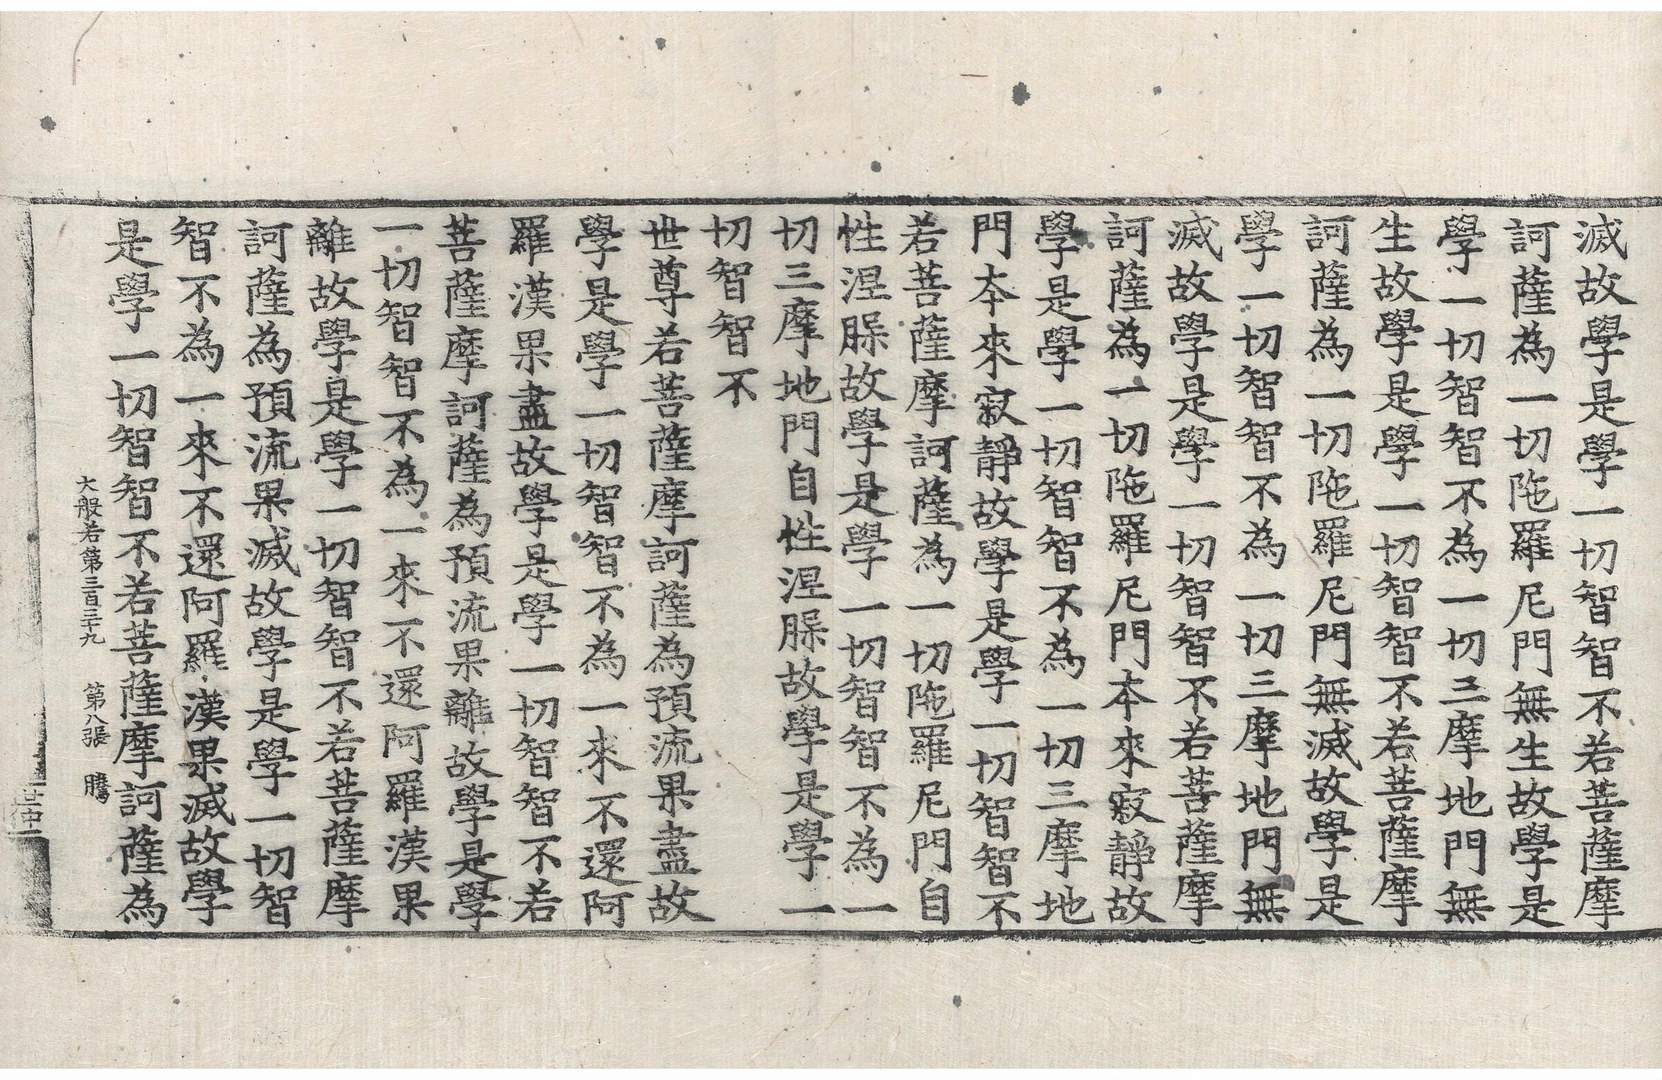 滅故學是學一切智智不若菩薩摩
訶薩為一切陁羅尼門無生故學是
學一切智智不為一切三摩地門無
生故學是學一切智智不若菩薩摩
訶薩為一切陁羅尼門無滅故學是
學一切智智不為一切三摩地門無
滅故學是學一切智智不若菩薩摩
訶薩為一切陁羅尼門本來寂靜故
學是學一切智智不為一切三摩地
門本來寂靜故學是學一切智智不
若菩薩摩訶薩為一切陁羅尼門自
性涅槃故學是學一切智智不為一
切三摩地門自性涅槃故學是學一
切智智不
世尊若菩薩摩訶薩為預流果盡故
學是學一切智智不為一來不還阿
羅漢果盡故學是學一切智智不若
菩薩摩訶薩為預流果離故學是學
一切智智不為一來不還阿羅漢果
離故學是學一切智智不若菩薩摩
訶薩為預流果滅故學是學一切智
智不為一來不還阿羅漢果滅故學
是學一切智智不若菩薩摩訶薩為
大般若第三百三十九 第八張 騰